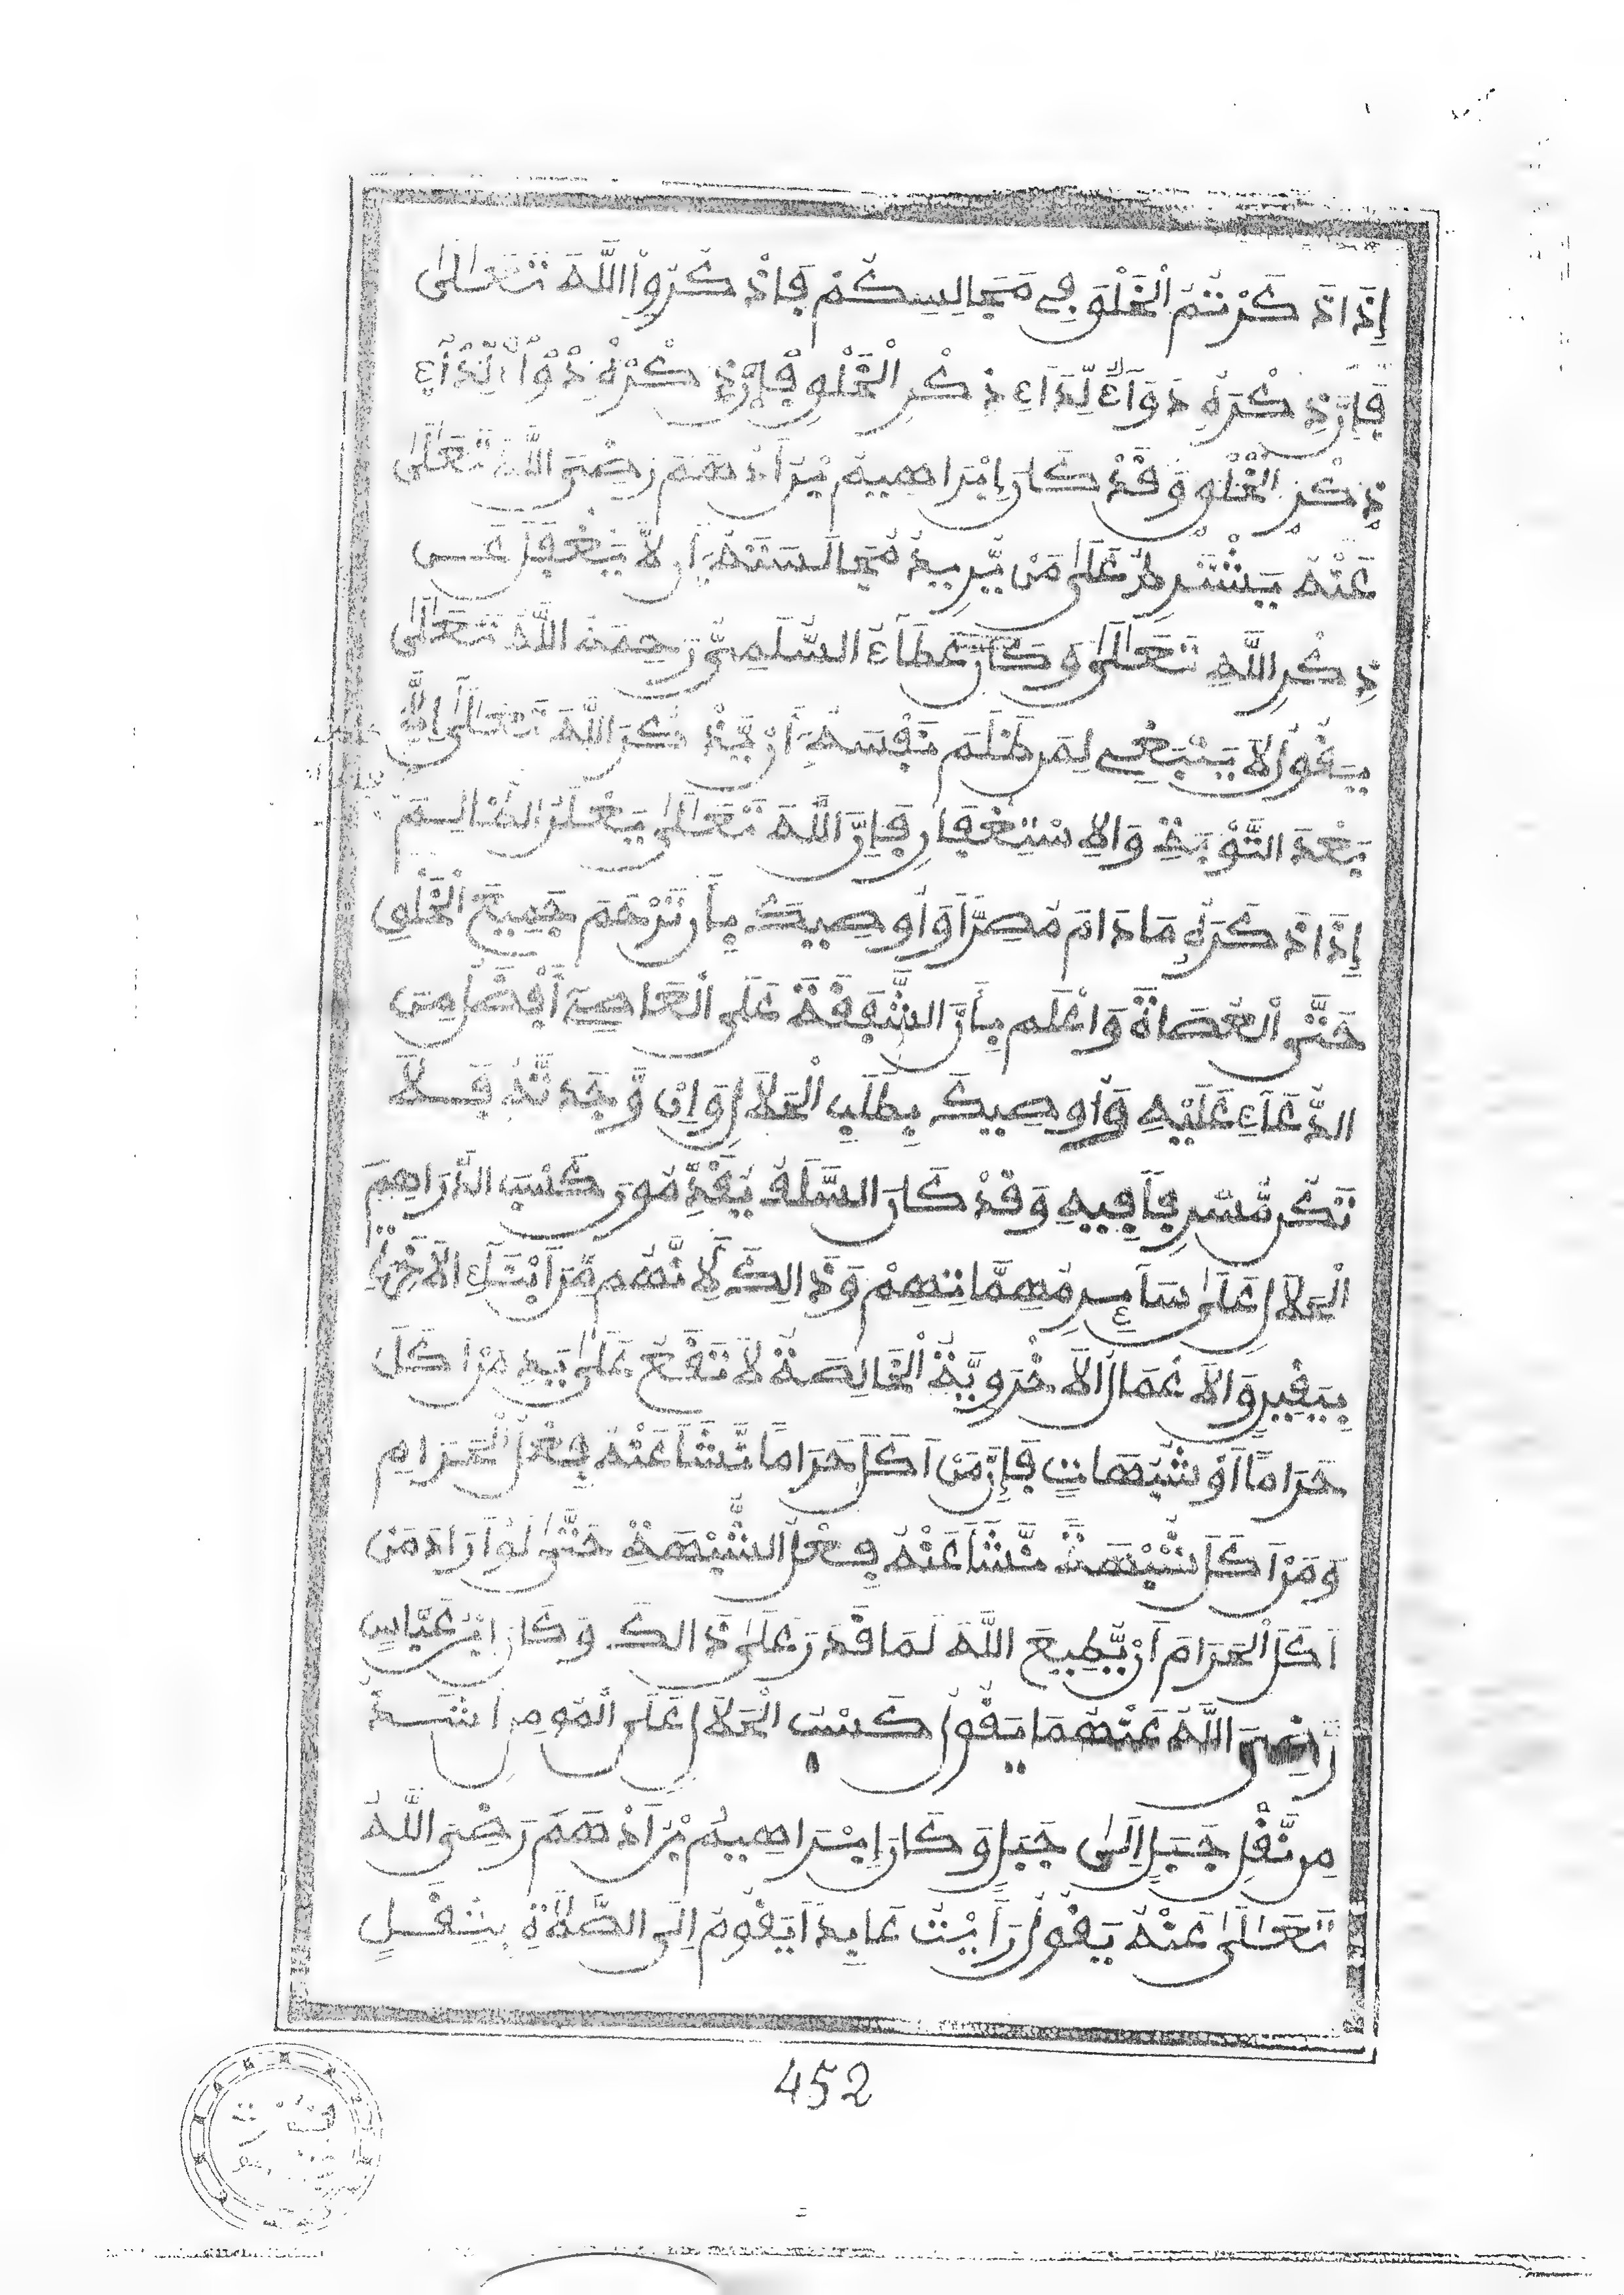 إِذَا ذَكَرْتُمُ الْخَلْقَ فِي مَجَالِسِكُمْ فَاذْكُرُواْ اللَّهَ تَعَالَىٰ
فَإِنَّ ذِكْرَهُ دَوَآءٌ لِّدَآءِ ذِكْرِ الْخَلْقِ فَإِنَّ ذِكْرَهُ دَوَآءٌ لِّدَآءِ
ذِكْرِ الْخَلْقِ وَقَدْ كَانَ إِبْرَاهِيمُ بْنُ أَدْهَمَ رَضِيَ اللَّهُ تَعَالَىٰ
عَنْهُ يَشْتَرِطُ عَلَىٰ مَنْ يُّرِيدُ مُجَالَسَتَهُ أَن لَّا يَغْفَلَ عَن
ذِكْرِ اللَّهِ تَعَالَىٰ وَكَانَ عَطَآءُ السُّلَمِيُّ رَحِمَهُ اللَّهُ تَعَالَىٰ
يَقُولُ لَا يَنْبَغِي لِمَن ظَلَمَ نَفْسَهُ أَنْ يَّذْكُرَ اللَّهَ تَعَالَىٰ إِلَّا
بَعْدَ التَّوْبَةِ وَالِاسْتِغْفَارِ فَإِنَّ اللَّهَ تَعَالَىٰ يَلْعَنُ الظَّالِمَ
إِذَا ذَكَرَهُ مَا دَامَ مُصِرًّا وَأُوصِيكَ بِأَن تَرْحَمَ جَمِيعَ الْخَلْقِ
حَتَّى الْعُصَاةَ وَاعْلَم بِأَنَّ الشَّفَقَةَ عَلَى الْعَاصِي أَفْضَلُ مِنَ
الدُّعَآءِ عَلَيْهِ وَأُوصِيكَ بِطَلَبِ الْحَلَالِ وَإِن وَّجَدتَّهُ فَلَا
تَكُن مُّسْرِفًا فِيهِ وَقَدْ كَانَ السَّلَفُ يُقَدِّمُونَ كَسْبَ الدَّرَاهِمِ
الْحَلَالِ عَلَىٰ سَآئِرِ مُهِمَّاتِهِمْ وَذَالِكَ لِأَنَّهُم مِّنْ أَبْنَآءِ الْآخِرَةِ
بِيَقِينٍ وَالْأَعْمَالُ الْأُخْرَوِيَّةُ الْخَالِصَةُ لَا تَقَعُ عَلَىٰ يَدِ مَنْ أَكَلَ
حَرَامًا أَوْ شُبُهَاتٍ فَإِنَّ مَنْ أَكَلَ حَرَامًا نَّشَأَ عَنْهُ فِعْلُ الْحَرَامِ
وَمَنْ أَكَلَ شُبْهَةً نَّشَأَ عَنْهُ فِعْلُ الشُّبْهَةِ حَتَّىٰ لَوْ أَرَادَ مَنْ
أَكَلَ الْحَرَامَ أَنْ يُّطِيعَ اللَّهَ لَمَا قَدَرَ عَلَىٰ ذَالِكَ وَكَانَ ابْنُ عَبَّاسٍ
رَّضِيَ اللَّهُ عَنْهُمَا يَقُولُ كَسْبُ الْحَلَالِ عَلَى الْمُومِنِ أَشَدُّ
مِن نَّقْلِ جَبَلٍ إِلَىٰ جَبَلٍ وَكَانَ إِبْرَاهِيمُ بْنُ أَدْهَمَ رَضِيَ اللَّهُ
تَعَالَىٰ عَنْهُ يَقُولُ رَأَيْتُ عَابِدًا يَقُومُ إِلَى الصَّلَاةِ بِثِقْلٍ
452